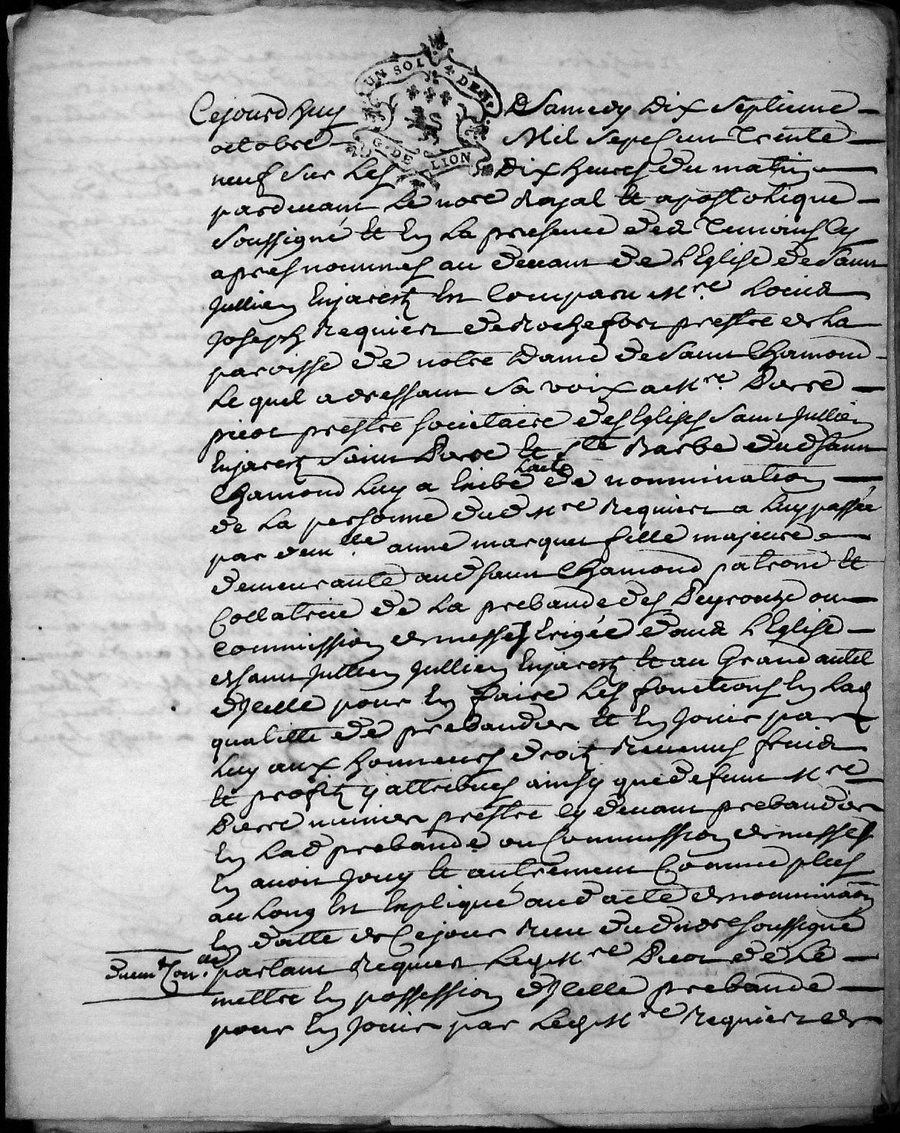 UN SOL 4 DE.
G. DE LION
Cejourd'huy Samedy Dix Septieme
octobre Mil Sept Cent Trente
neuf sur Les Dix heures du matin
pardevant Le nore Royal et apostolique
soussigné et En La presence des Temoins Cy
apres nommes au devant de L'Eglise de Saint
Jullien Enjarest Est Comparu Mre. Louis
Joseph Requier de Rochefort prestre de La
paroisse de notre Dame de Saint Chamond
Lequel adressant Sa voix a Mre Pierre
picot prestre societaire des Eglises Saint Jullien
Enjarest Saint Pierre et Ste Barbe dud Saint
Chamond Luy a Exibé Lacte de nommination
de La personne dud Mre Requier a Luy passée
par demlle anne marquet fille majeure
demeurante aud Saint Chamond patrone et
Collatrice de La prebande des Peyrouze ou
Commission de messes Erigée dans L'Eglise
de Saint Jullien Jullien Enjarest et au Grand autel
d'Icelle pour En faire Les fonctions En Lad
qualitte de prebandier et En Jouir par
Luy aux Honneurs droits Revenus fruits
et profits y attribues ainsy que defunt Mre
Pierre prestre Cy devant prebandier
En Lad prebande ou Commission de messes
En avoir Jouy et autrement Comme plus
au Long Est Expliqué aud acte de nomination
En datte de Cejour Receu dud nore soussigné
parlant Requier Led Mre Picot de Le
mettre En possession d'Icelle prebande
pour En Jouir par Led Mre Requier de